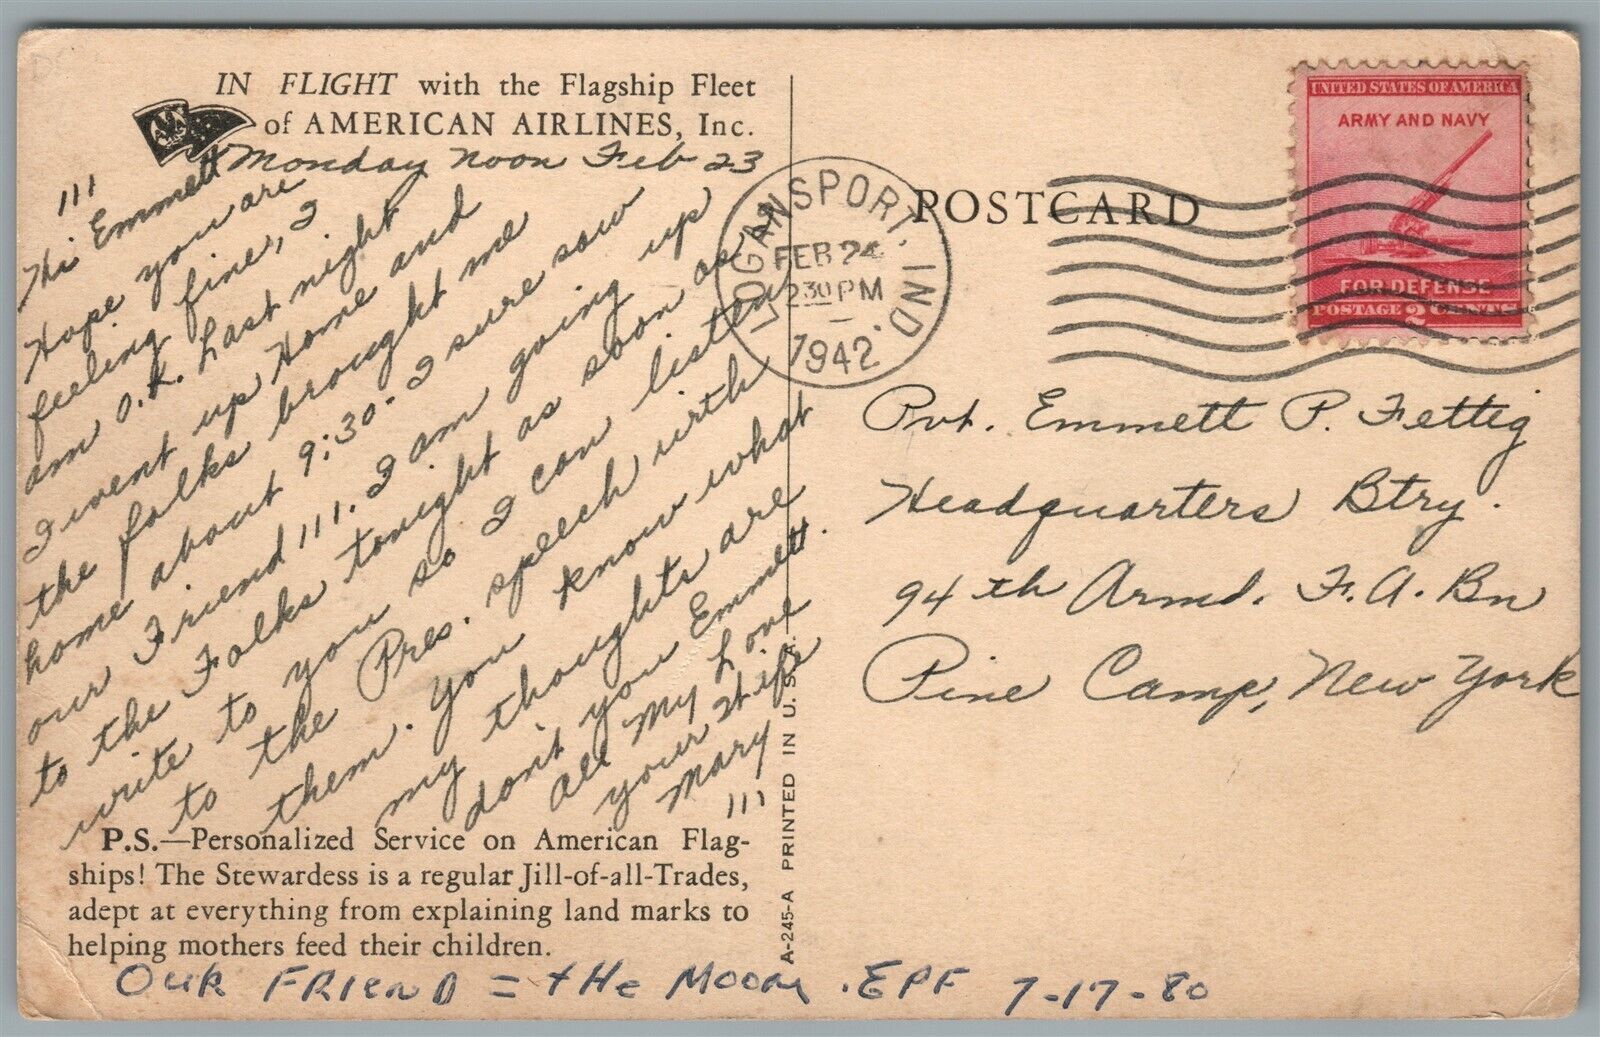 IN FLIGHT with the Flagship Fleet
of AMERICAN AIRLINES, Inc.
Monday Noon Feb 23
111
Hi Emmett
Hope you are
feeling fine, I
am O.K. Last night
I went up Home and
the folks brought me
home about 9:30. I sure saw
our Friend 111. I am going up
to the Folks tonight as soon as I
write to you so I can listen
to the Pres. speech with
them. You know what
my thoughts are
don't you Emmett.
All My Love
your Wife
Mary
111
P.S.—Personalized Service on American Flag-
ships! The Stewardess is a regular Jill-of-all-Trades,
adept at everything from explaining land marks to
helping mothers feed their children.
OUR FRIEND = tHe Moon. EPF 7-17-80
A-245-A PRINTED IN U. S. A.
POSTCARD
LOGANSPORT. IND.
FEB 24
2 30 PM
1942
UNITED STATES OF AMERICA
ARMY AND NAVY
FOR DEFENSE
POSTAGE 2 CENTS
Pvt. Emmett P. Fettig
Headquarters Btry.
94th Armd. F.A. Bn
Pine Camp, New York